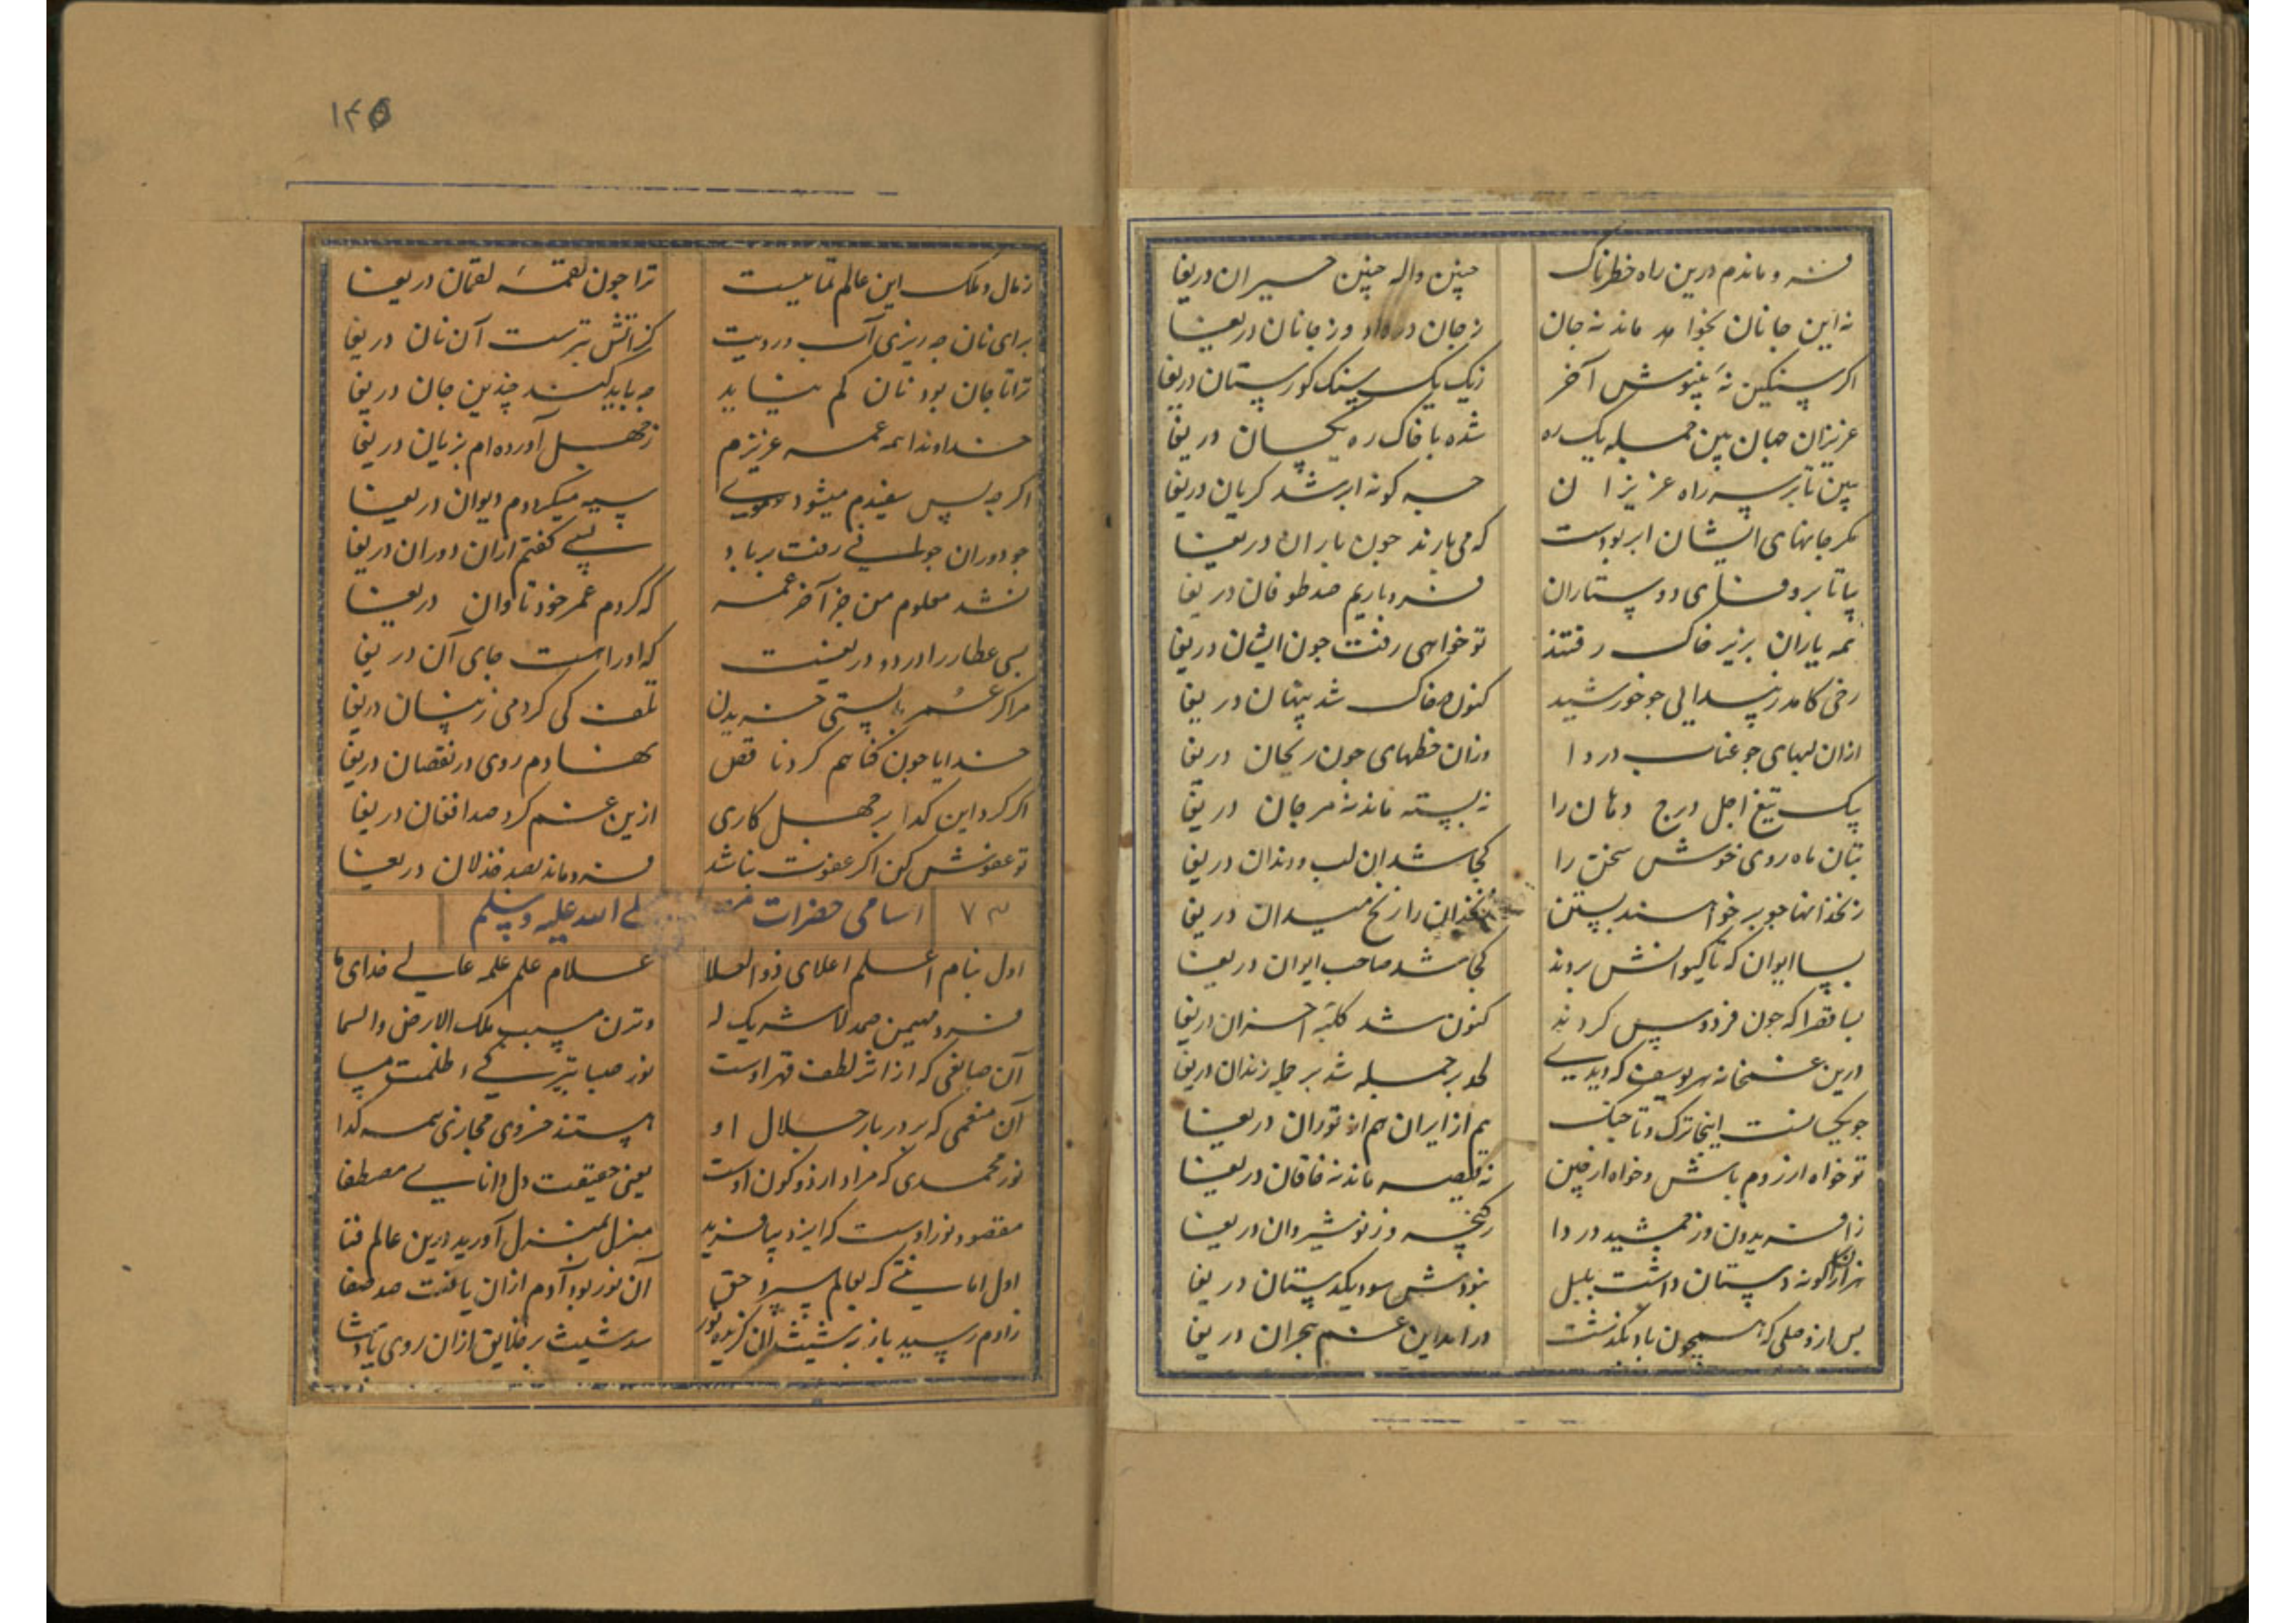 فرو ماندم درین راه خطرناک چنین واله چنین حیران دریغا
نه این جانان بخواهد ماند نه جان ز جان دردا و وز جانان دریغا
اگر سنگین نهٔ بنیوش آخر ز یک یک سنک کورستان دریغا
عزیزان جهان بین جمله یک ره شده با خاک ره یکسان دریغا
ببین تا بر سر راه عزیزان چه کونه ابر شد کریان دریغا
مکر جانهای ایشان ابر بودست که می بارند چون باران دریغا
بیا تا بر وفای دوستاران فرو باریم صد طوفان دریغا
همه یاران بزیر خاک رفتند تو خواهی رفت چون ایشان دریغا
رخی کامد ز پیدایی جو خورشید کنون در خاک شد پنهان دریغا
ازان لبهای جو عناب دردا وزان خطهای جون ریحان دریغا
بیک تیغ اجل درج دهان را نه پسته ماند نه مرجان دریغا
بتان ماه روی خوش سخن را کجا شد ان لب و دندان دریغا
زنخدانها جو بر خواهند بستن زنخدان را زنخ میدان دریغا
بسا ایوان که تا کیوانش بردند کجا شد صاحب ایوان دریغا
بسا قصرا که جون فردوس کردند کنون شد کلبهٔ احزان دریغا
درین غمخانه هر یوسف که دیدی لحد بر جمله شد زندان دریغا
جو یکسانست اینجا ترک و تاجیک هم از ایران هم از توران دریغا
تو خواه از روم باش و خواه از چین نه قیصر ماند نه خاقان دریغا
ز افریدون وز جمشید دردا ز کیخسرو ز نوشیروان دریغا
هزاران کونه دستان داشت بلبل نبودش سود یکدستان دریغا
پس از وصلی که همچون باد بگذشت درامد این غم هجران دریغا
۱۴۵
ز مال و ملک این عالم تمامیست ترا جون لقمهٔ لقمان دریغا
برای نان چه ریزی آب رویت کز آتش بترست آن نان دریغا
ترا تا جان بود نان کم نیاید چه باید کند چندین جان دریغا
خداوندا همه عمر عزیزم ز جهل آورده ام بزیان دریغا
اکر چه بس سفیدم میشود موی سیه میکردم دیوان دریغا
جو دوران جوانی رفت بر باد بسی کفتم ازان دوران دریغا
نشد معلوم من جز آخر عمر که کردم عمر خود تاوان دریغا
بسی عطار را درد و دریغست که او را هست جای آن دریغا
مرا کر عمر بایستی خریدن تلف کی کردمی زینسان دریغا
خدایا چون کناهم کرد ناقص نهادم روی در نقصان دریغا
اکر کرد این کدا بر جهل کاری ازین غم کرد صد افغان دریغا
تو عفوش کن اکر عفوت نباشد فرو ماند بصد خذلان دریغا
۷۳ اسامی حضرات لی الله علیه وسلم
اول بنام اعلم اعلای ذوالعلا علام علم علمه عالی خدای ما
فرد مهیمن صمد لا شریک له وترن سبب ملک الارض والسما
آن صانعی که از اثر لطف قهر اوست نور صبا تیرکی و ظلمت مسا
آن منعمی که بر در بار جلال او هستند خسروی مجازی همه کدا
نور محمدی که مراد از دو کون اوست یعنی حقیقت دل دانای مصطفا
مقصود نور اوست که ایزد بیافرید منزل بمنزل آورید درین عالم فنا
اول امانتی که بعالم سپرد حق آن نور بود آدم ازان یافت صد صفا
ز ادم رسید باز بشیث ان کزیده نور شد شیث بر خلایق ازان روی پادشا